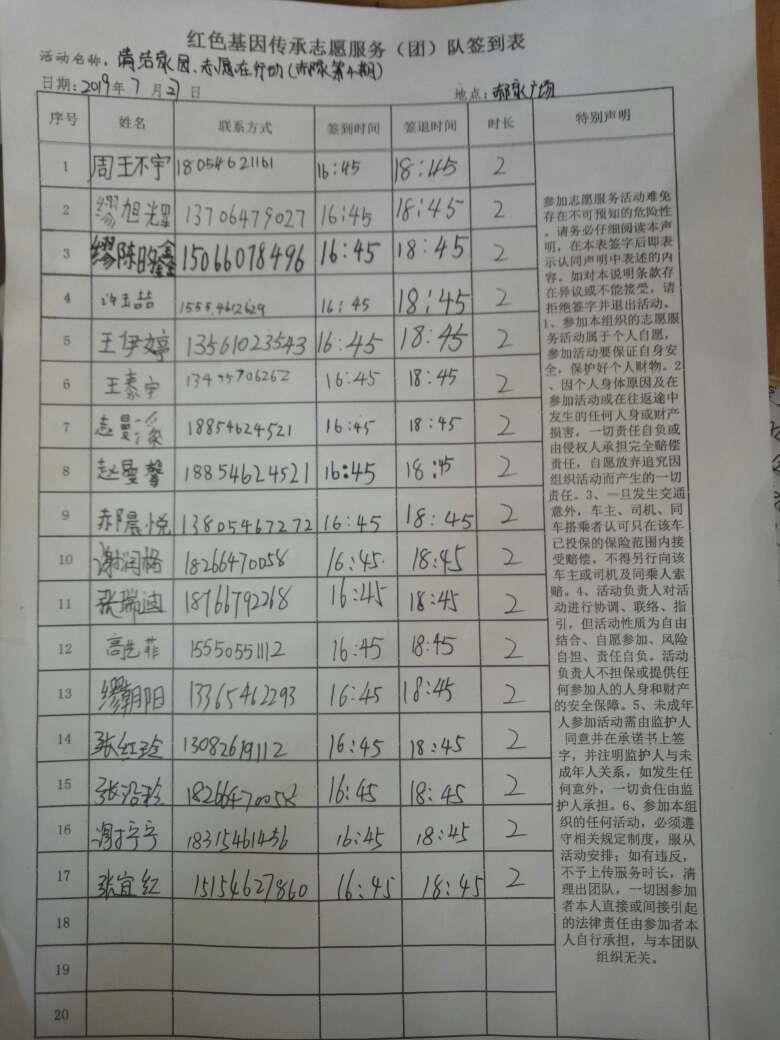 红色基因传承志愿服务（团）队签到表
活动名称：清洁家园、志愿在行动(郝家第4期)
日期：2019年7月27日 地点：郝家广场
序号 姓名 联系方式 签到时间 签退时间 时长 特别声明
1 周王不宇 18054621161 16:45 18:45 2
2 缪旭耀 13706479027 16:45 18:45 2
3 缪陈昫鑫 15066078496 16:45 18:45 2
4 许玉喆 15554612629 16:45 18:45 2
5 王伊婷 13561023543 16:45 18:45 2
6 王泰宇 16:45 18:45 2
7 18854624521 16:45 18:45 2
8 赵曼馨 18854624521 16:45 18:45 2
9 郝晨悦 13805467272 16:45 18:45 2
10 谢润格 18266470058 16:45 18:45 2
11 张瑞迪 18766792268 16:45 18:45 2
12 高艺菲 15550551112 16:45 18:45 2
13 缪朝阳 13365462293 16:45 18:45 2
14 张红玲 13082619112 16:45 18:45 2
15 18266470058 16:45 18:45 2
16 18315461456 16:45 18:45 2
17 张宜红 15154627860 16:45 18:45 2
18
19
20
参加志愿服务活动难免
存在不可预知的危险性
，请务必仔细阅读本声
明，在本表签字后即表
示认同声明中表述的内
容。如对本说明条款存
在异议或不能接受，请
拒绝签字并退出活动。
1、参加本组织的志愿服
务活动属于个人自愿，
参加活动要保证自身安
全，保护好个人财物。2
、因个人身体原因及在
参加活动或在往返途中
发生的任何人身或财产
损害，一切责任自负或
由侵权人承担完全赔偿
责任，自愿放弃追究因
组织活动而产生的一切
责任。3、一旦发生交通
意外，车主、司机、同
车搭乘者认可只在该车
已投保的保险范围内接
受赔偿，不得另行向该
车主或司机及同乘人索
赔。4、活动负责人对活
动进行协调、联络、指
引，但活动性质为自由
结合、自愿参加、风险
自担、责任自负。活动
负责人不担保或提供任
何参加人的人身和财产
的安全保障。5、未成年
人参加活动需由监护人
同意并在承诺书上签
字，并注明监护人与未
成年人关系，如发生任
何意外，一切责任由监
护人承担。6、参加本组
织的任何活动，必须遵
守相关规定制度，服从
活动安排；如有违反，
不予上传服务时长，清
理出团队，一切因参加
者本人直接或间接引起
的法律责任由参加者本
人自行承担，与本团队
组织无关。